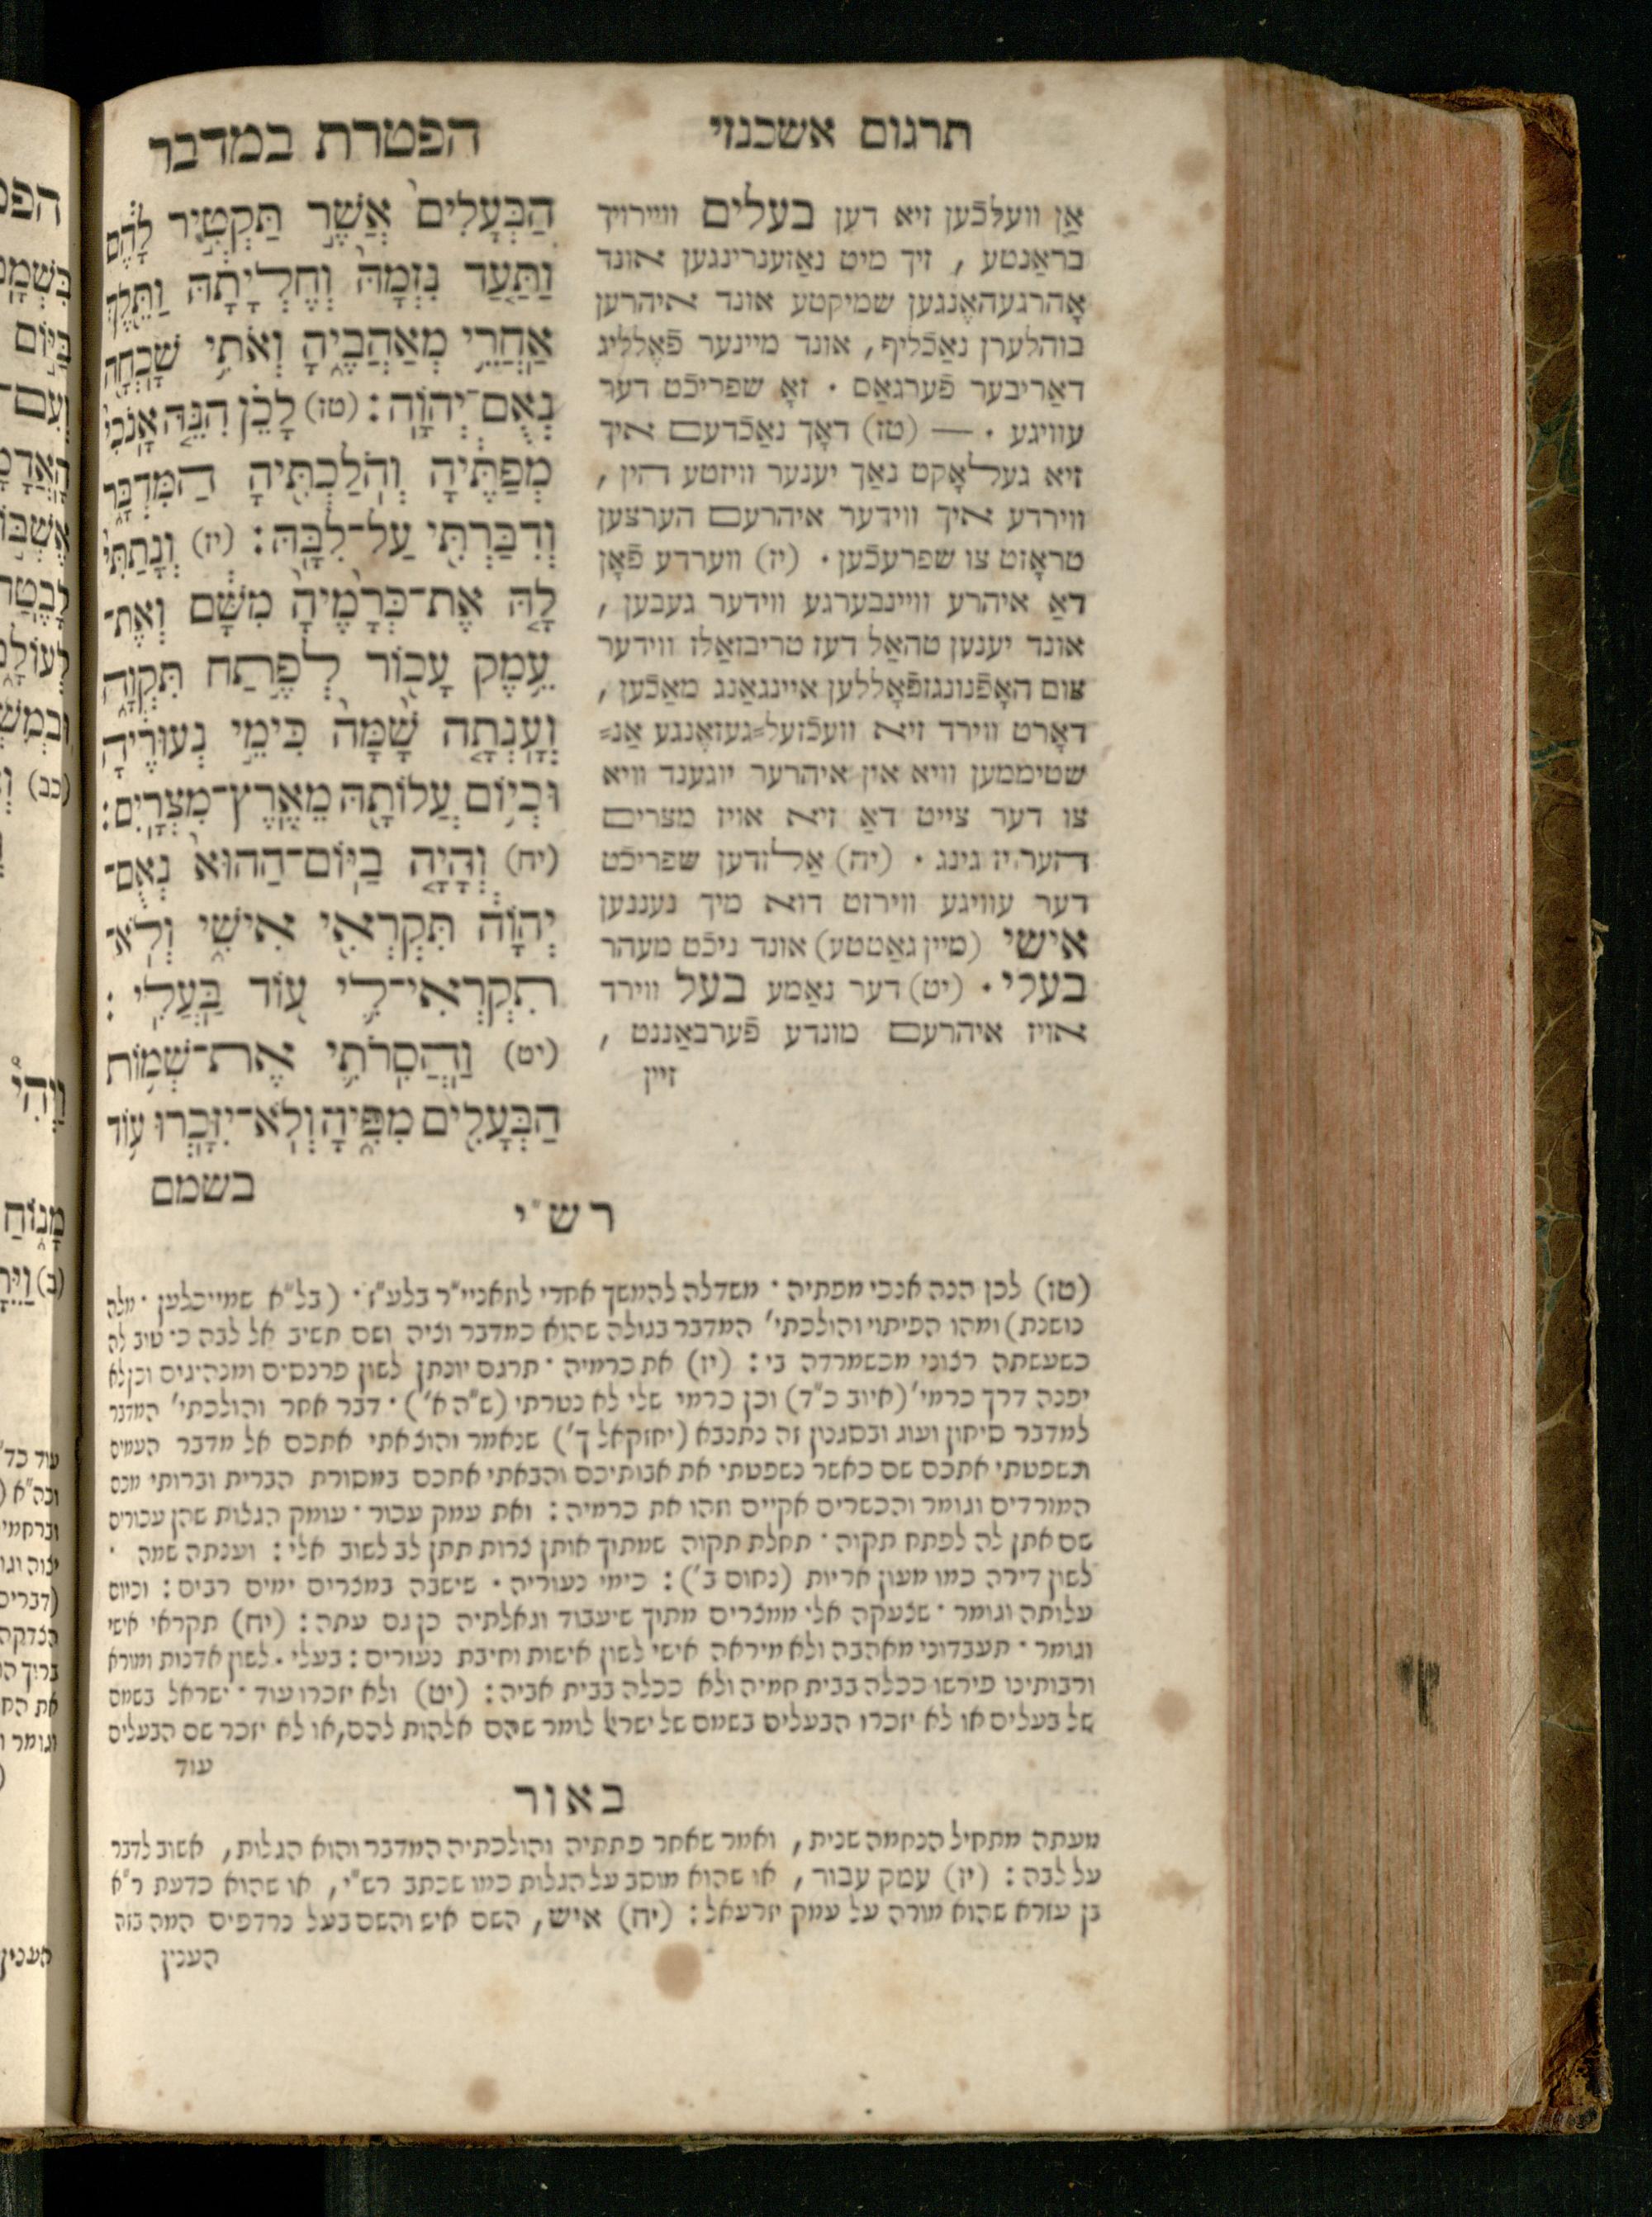 תרגום אשכנזי
הפטרת במדבר
אַן וועלכֿען זיא דען בעלים ווייריך
בראַנטע , זיך מיט נאַזענרינגען אונד
אָהרגעהאֶנגען שמיקטע אונד איהרען
בוהלערן נאַכֿליף, אונד מיינער פֿאֶלליג
דאַריבער פֿערגאַס · זאָ שפריכֿט דער
עוויגע · — (טז) דאָך נאַכֿדעם איך
זיא געלאָקט נאַך יענער וויזטע הין ,
ווירדע איך ווידער איהרעם הערצען
טראָזט צו שפרעכֿען · (יז) ווערדע פֿאָן
דאַ איהרע וויינבערגע ווידער געבען ,
אונד יענען טהאַל דעז טריבזאַלז ווידער
צום האָפֿנונגזפֿאָללען איינגאַנג מאַכֿען ,
דאָרט ווירד זיא וועכֿזעל=געזאֶנגע אַנ=
שטיממען וויא אין איהרער יוגענד וויא
צו דער צייט דאַ זיא אויז מצרים
הערויז גינג · (יח) אַלזדען שפריכֿט
דער עוויגע ווירזט דוא מיך נעננען
אישי (מיין גאַטטע) אונד ניכֿט מעהר
בעלי · (יט) דער נאַמע בעל ווירד
אויז איהרעם מונדע פֿערבאַננט ,
זיין
הַבְּעָלִים֙ אֲשֶׁ֣ר תַּקְטִ֣יר לָהֶ֔ם
וַתַּ֤עַד נִזְמָהּ֙ וְחֶלְיָתָ֔הּ וַתֵּ֖לֶךְ
אַחֲרֵ֣י מְאַהֲבֶ֑יהָ וְאֹתִ֥י שָׁכְחָ֖ה
נְאֻם־יְהוָֹֽה׃ (טז) לָכֵ֗ן הִנֵּ֤ה אָֽנֹכִי֙
מְפַתֶּ֔יהָ וְהֹֽלַכְתִּ֖יהָ הַמִּדְבָּ֑ר
וְדִבַּרְתִּ֖י עַל־לִבָּֽהּ׃ (יז) וְנָתַ֨תִּי
לָ֤הּ אֶת־כְּרָמֶ֙יהָ֙ מִשָּׁ֔ם וְאֶת־
עֵ֥מֶק עָכ֖וֹר לְפֶ֣תַח תִּקְוָ֑ה
וְעָ֤נְתָה שָּׁ֙מָּה֙ כִּימֵ֣י נְעוּרֶ֔יהָ
וּכְי֖וֹם עֲלוֹתָ֥הּ מֵאֶֽרֶץ־מִצְרָֽיִם׃
(יח) וְהָיָ֤ה בַיּוֹם־הַהוּא֙ נְאֻם־
יְהוָֹ֔ה תִּקְרְאִ֖י אִישִׁ֑י וְלֹֽא־
תִקְרְאִי־לִ֥י ע֖וֹד בַּעְלִֽי׃
(יט) וַהֲסִרֹתִ֛י אֶת־שְׁמ֥וֹת
הַבְּעָלִ֖ים מִפִּ֑יהָ וְלֹֽא־יִזָּכְר֥וּ ע֖וֹד
בשמם
רש״י
(טז) לכן הנה אנכי מפתיה · משדלה להמשך אחרי לתאניי״ר בלע״ז · (בל״א שמייכלען · מלה
נושנת) ומהו הפיתוי והולכתי׳ המדבר בגולה שהוא כמדבר וציה ושם תשיב אל לבה כי טוב לה
כשעשתה רצוני מכשמרדה בי : (יז) את כרמיה · תרגם יונתן לשון פרנסים ומנהיגים וכן לא
יפנה דרך כרמי׳ (איוב כ״ד) וכן כרמי שלי לא נטרתי (ש״ה א׳) · דבר אחר והולכתי׳ המדבר
למדבר סיחון ועוג ובסגנון זה נתנבא (יחזקאל ך׳) שנאמר והוצאתי אתכם אל מדבר העמים
ונשפטתי אתכם שם כאשר נשפטתי את אבותיכם והבאתי אתכם במסורת הברית וברותי מכם
המורדים וגומר והכשרים אקיים וזהו את כרמיה : ואת עמק עכור · עומק הגלות שהן עכורים
שם אתן לה לפתח תקוה · תחלת תקוה שמתוך אותן צרות תתן לב לשוב אלי : וענתה שמה ·
לשון דירה כמו מעון אריות (נחום ב׳) : כימי נעוריה · שישבה במצרים ימים רבים : וכיום
עלותה וגומר · שצעקה אלי ממצרים מתוך שיעבוד וגאלתיה כן גם עתה : (יח) תקראי אישי
וגומר · תעבדוני מאהבה ולא מיראה אישי לשון אישות וחיבת נעורים : בעלי · לשון אדנות ומורא
ורבותינו פירשו ככלה בבית חמיה ולא ככלה בבית אביה : (יט) ולא יזכרו עוד · ישראל בשמם
של בעלים או לא יזכרו הבעלים בשמם של ישראל לומר שהם אלהות להם, או לא יזכר שם הבעלים
עוד
באור
מעתה מתחיל הנחמה שנית , ואמר שאחר פתתיה והולכתיה המדבר והוא הגלות , אשוב לדבר
על לבה : (יז) עמק עכור , או שהוא מוסב על הגלות כמו שכתב רש״י , או שהוא כדעת ר״א
בן עזרא שהוא מורה על עמק יזרעאל : (יח) איש, השם איש והשם בעל נרדפים המה בזה
הענין